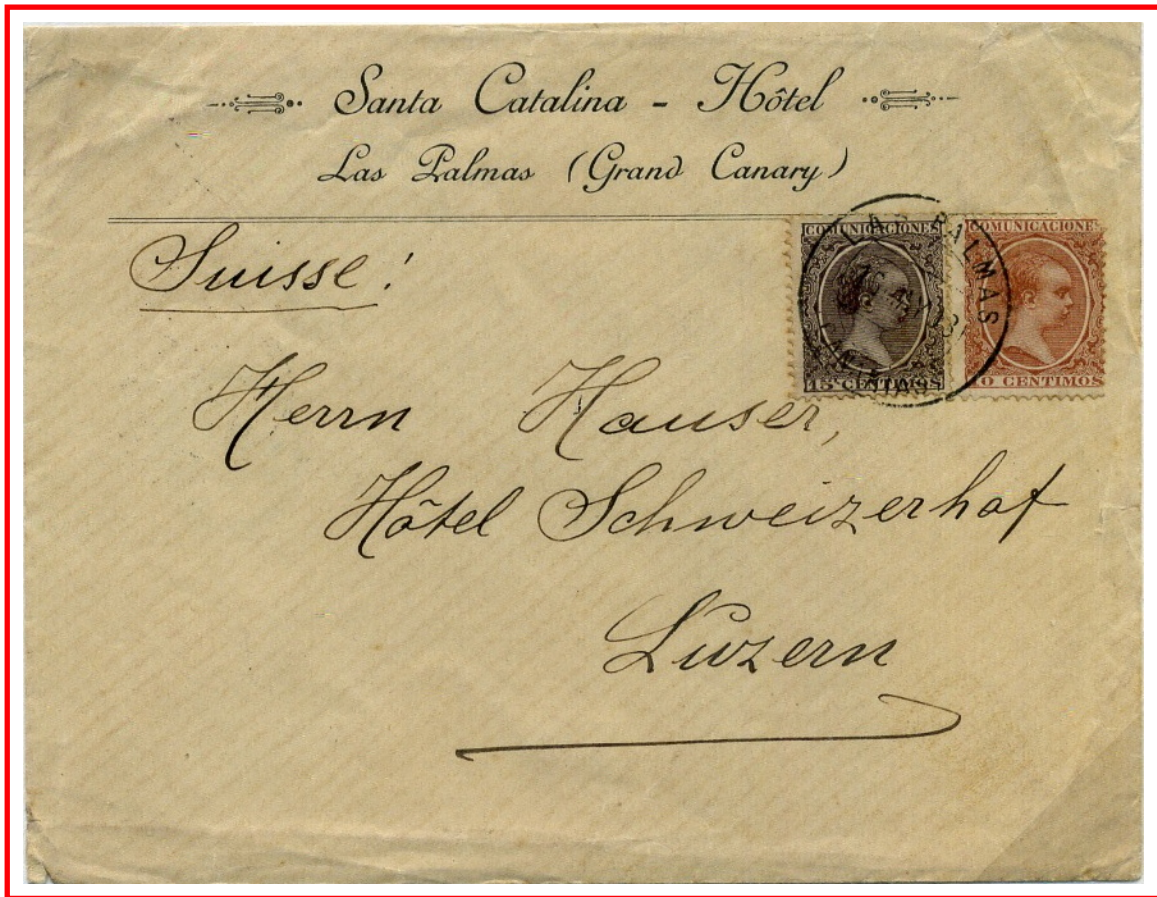 Santa Catalina - Hôtel
Las Palmas (Grand Canary)
Suisse!
COMUNICACIONES
COMUNICACIONES
LAS PALMAS
15 CENTIMOS
10 CENTIMOS
Herrn Hauser,
Hôtel Schweizerhof
Luzern